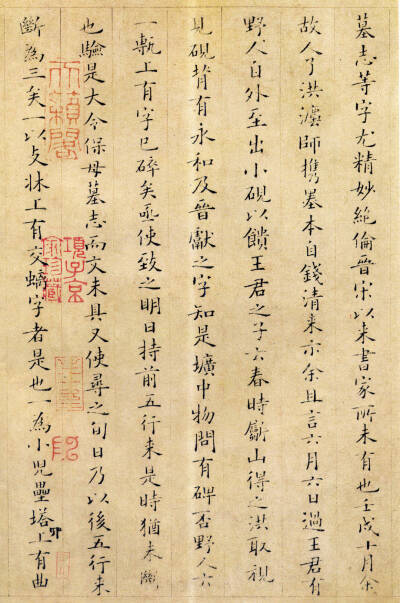 墓志等字尤精妙絕倫晉宋以來書家所未有也壬戌十月余
故人了洪瀆師攜墨本自錢清來示余且言六月六日過王君有
野人自外至出小硯以饋王君之子云春時斸山得之洪取視
見硯背有永和及晉獻之字知是壙中物問有碑否野人云
一甎上有字已碎矣亟使致之明日持前五行來是時猶未斷
也驗是大令保母墓志而文未具又使尋之旬日乃以後五行來
斷為三矣一以支牀上有交螭字者是也一為小兒壘塔上有曲
卯
項子京
家珍藏